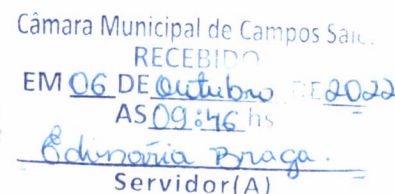 Câmara Municipal de Campos Sal
RECEBIDO
EM 06 DE Outubro DE 2022
AS 09:46 hs
Edinária Braga.
Servidor(A)